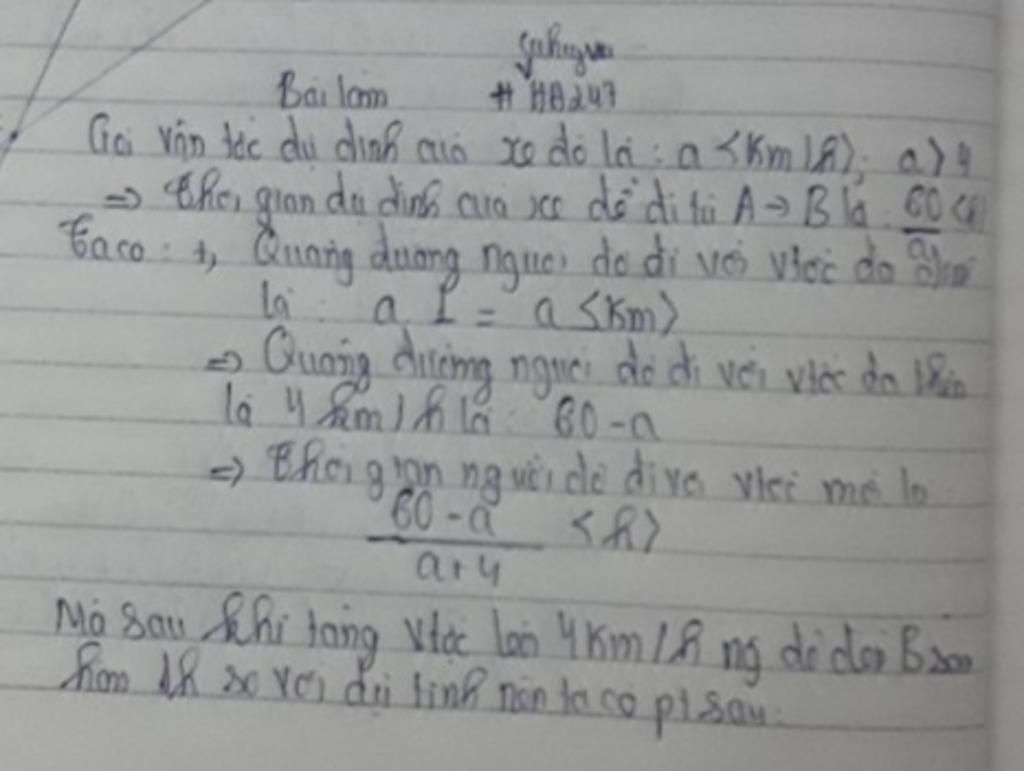 Bài làm # HA247
Gọi vận tốc dự định của xe đó là : a <km/h>; a > 4
=> thời gian dự định của xe để đi từ A -> B là : 60/a <h>
ta có : +, Quãng đường người đó đi với vtốc dự
là : a . 1 = a <km>
=> Quãng đường người đó đi với vtốc
là 4 km/h là : 60 - a
=> thời gian người đó đi với vtốc mới là
60 - a / a + 4 <h>
Mà sau khi tăng vtốc lên 4 km/h ng đó đến B sớm
hơn 1h so với dự tính nên ta có pt sau :